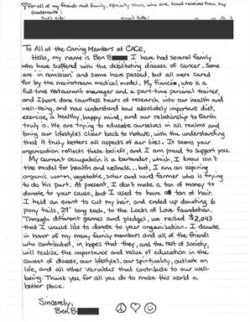 for all of my friends and family, specially those who are blood relatives
To All of the Caring Members at CACE,
Hello, my name is Ben B I have had several family
who have suffered with the debilitating disease of cancer. Some
are in remission and some have passed, but all were cared
for by the mainstream medical model. My fiancée, who is a
full-time restaurant manager and a part-time personal trainer,
and I have done countless hours of research into our health and
well-being, and now understand how absolutely important diet,
exercise, a healthy, happy mind, and our relationship to Earth
truly is. We are trying to educate ourselves in all realms and
bring our lifestyles closer back to nature, with the understanding
that it truly betters all aspects of our lives. It seems your
organization reflects these beliefs, and I am proud to support you.
My current occupation is a bartender, which, I know isn't
the model for health and wellness... but, I am an aspiring
organic worm, vegetable, solar and wind farmer who is trying
to do his part. At present, I don't make a ton of money to
donate to your cause, but I used to have a ton of hair.
I held an event to cut my hair, and ended up donating 6
pony tails, 27" long each, to the Locks of Love foundation.
Through different games and pledges, we raised $2,043
that I would like to donate to your organization. I donate
in honor of my many family members and all of the friends
who contributed, in hopes that they, and the rest of society,
will realize the importance and value of education in the
causes of disease, our lifestyles, our spirituality, outlook on
life, and all other variables that contribute to our well-
being. Thank you for all you do to make this world a
better place.
Sincerely,
Ben B